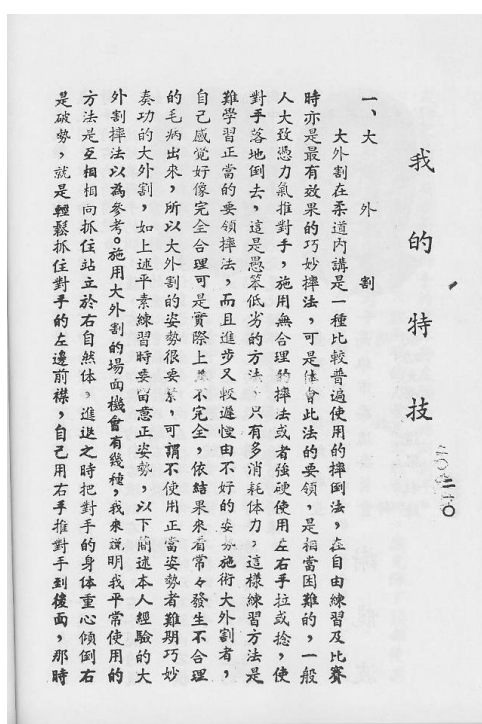 我的特技
一、大外割
大外割在柔道內講是一種比較普遍使用的摔倒法，在自由練習及比賽
時亦是最有效果的巧妙摔法，可是体會此法的要領，是相當困難的，一般
人大致憑力氣推對手，施用無合理的摔法或者強硬使用左右手拉或捻，使
對手落地倒去，這是愚笨低劣的方法，只有多消耗体力，這樣練習方法是
難學習正當的要領摔法，而且進步又較遲慢由不好的姿势施術大外割者，
自己感覺好像完全合理可是實際上並不完全，依結果來看常々發生不合理
的毛病出來，所以大外割的姿勢很要緊，可謂不使用正當姿勢者難期巧妙
奏功的大外割，如上述平素練習時要留意正姿勢，以下簡述本人經驗的大
外割摔法以為參考。施用大外割的場面機會有幾種，我來說明我平常使用的
方法是互相相向抓住站立於右自然体，進退之時把對手的身体重心傾倒右
是破勢，就是輕鬆抓住對手的左邊前襟，自己用右手推對手到後面，那時